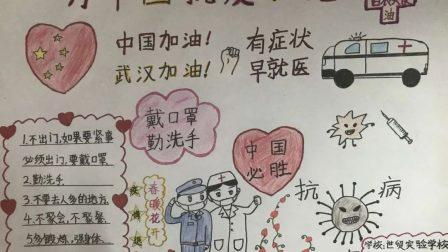 中国加油!
武汉加油!
有症状
早就医
戴口罩
勤洗手
中国
必胜
1.不出门,如果要紧事
必须出门,要戴口罩
2.勤洗手
3.不要去人多的地方.
4.不聚会,不聚餐.
5.多锻炼,强身体.
春暖花开
抗
病
学校:世贸实验学校